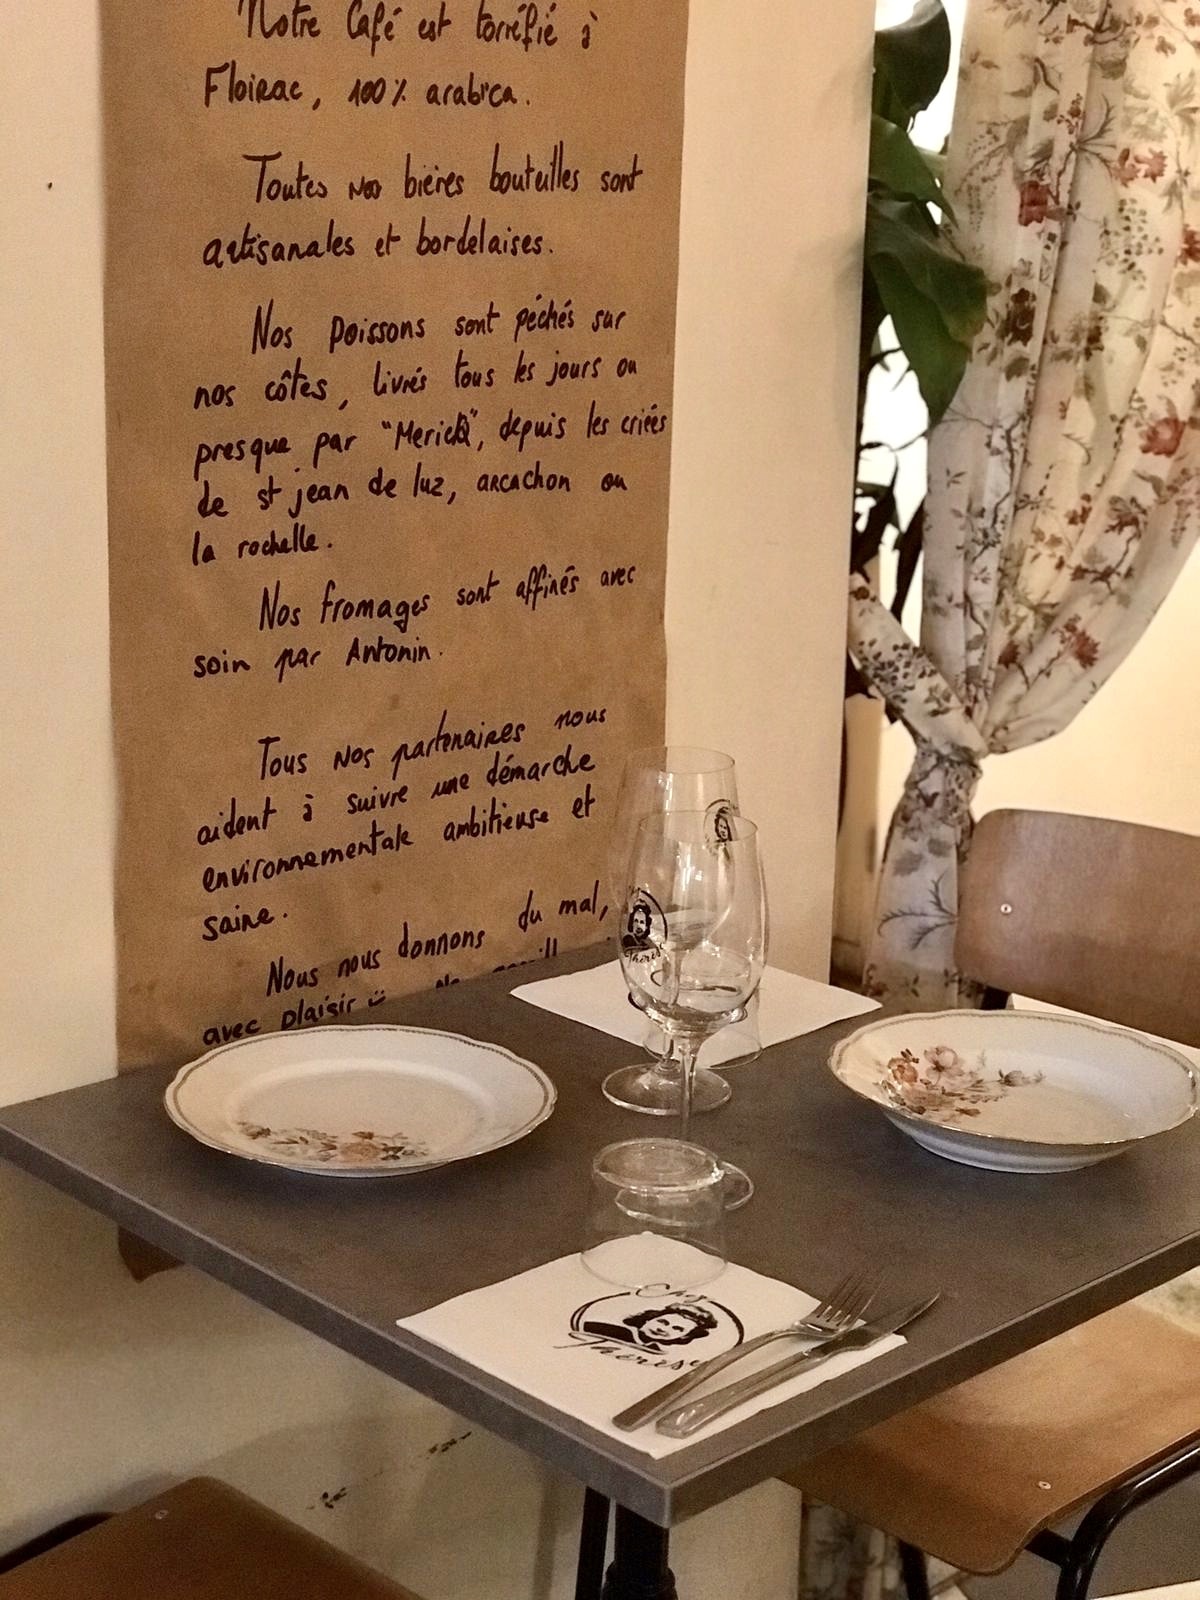 Notre Café est torréfié à
Floirac, 100% arabica.
Toutes nos bières bouteilles sont
artisanales et bordelaises.
Nos poissons sont péchés sur
nos côtes, livrés tous les jours ou
presque par "Merick", depuis les criées
de st jean de luz, arcachon ou
la rochelle.
Nos fromages sont affinés avec
soin par Antonin.
Tous nos partenaires nous
aident à suivre une démarche
environnementale ambitieuse et
saine.
Nous nous donnons du mal,
avec plaisir
Chez
Thérèse
Chez
Thérèse